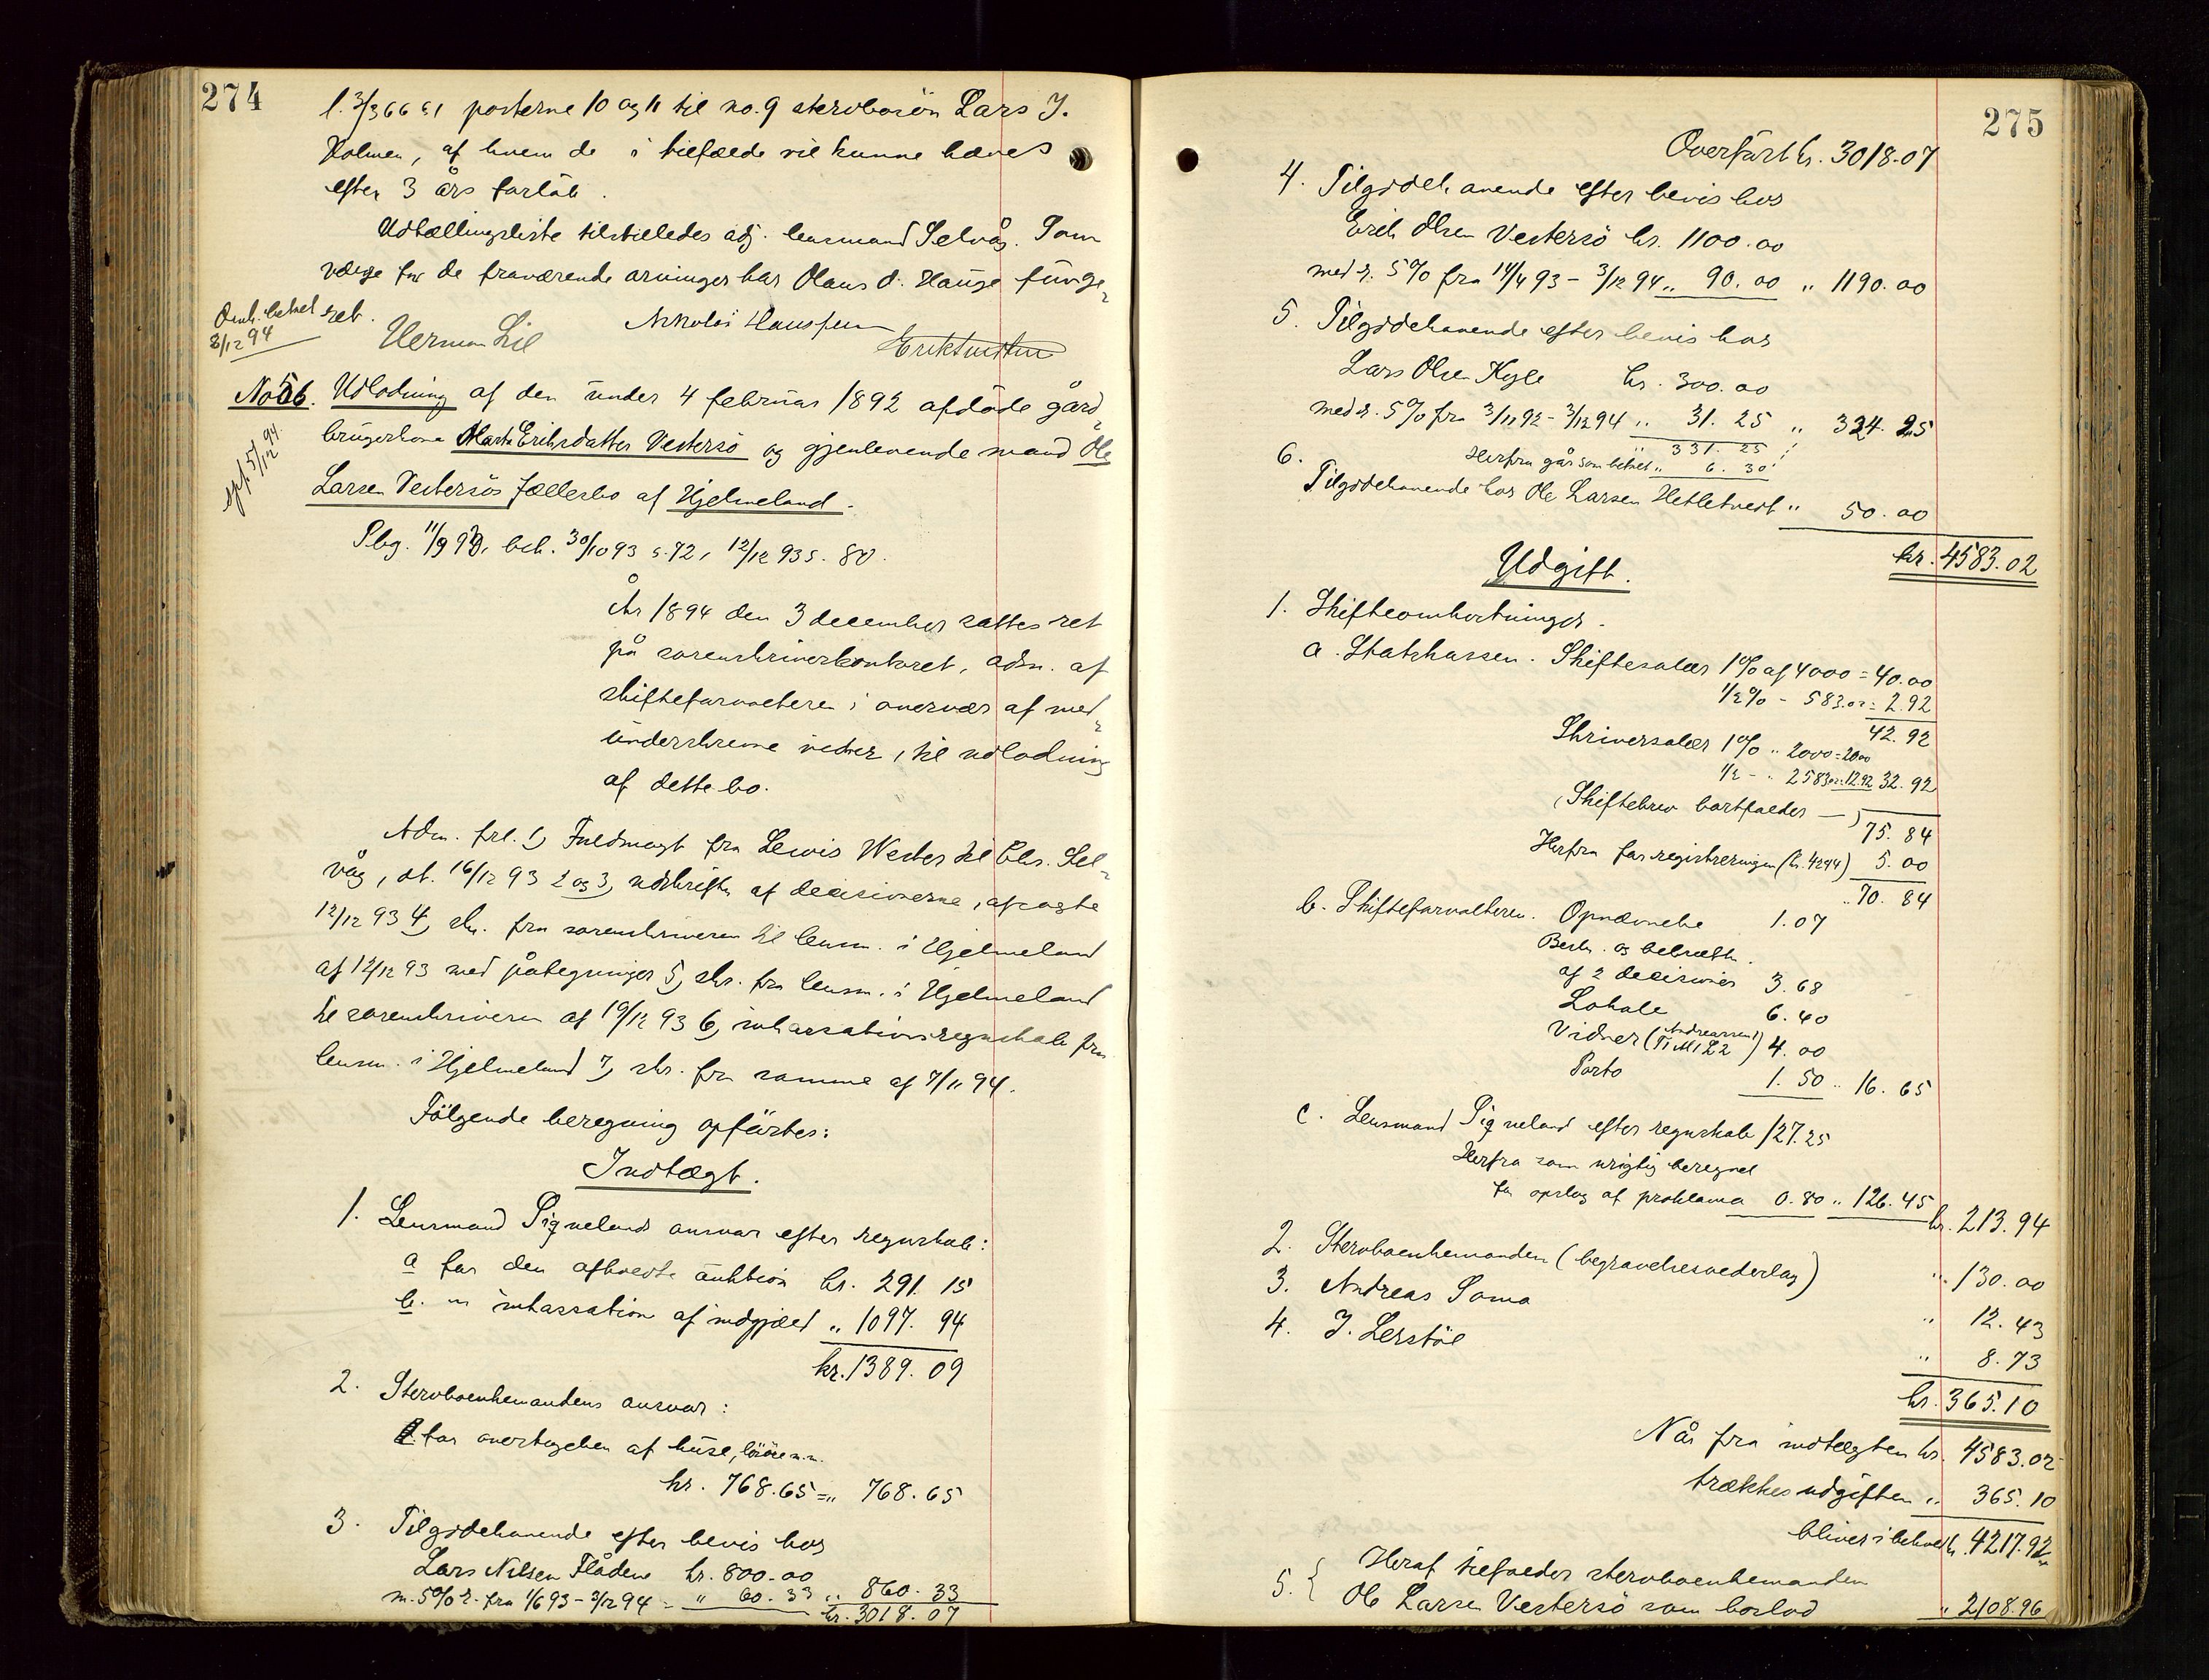 274
l. 3/3 66 s 1 posterne 10 og 11 til no. 9 stervbosön Lars J.
Holmen, af hvem de i tilfælde vil kunne hæves
efter 3 års forlöb.
Udtællingsliste tilstilledes adj. lensmand Selvåg. Som
værge for de fraværende arvinger har Olaus O. Hauge funge-
ret.
Omk. betalt
3/12 94
Herman Lie
Nikolai Hausken
No 56. Udlodning af den under 4 februar 1892 afdöde gård-
brugerkone Marta Eriksdatter Vestersö og gjenlevende mand Ole
Larsen Vestersös fællesbo af Hjelmeland.
exp. 5/12 94.
Pbg. 11/9 93, beh. 30/10 93 s. 72, 12/12 93 s. 80.
År 1894 den 3 december sattes ret
på sorenskriverkontoret, adm. af
skifteforvalteren i overvær af med-
underskrevne vidner, til udlodning
af dette bo.
Adm. frl. 1, Fuldmagt fra Lewis Wester til Chr. Sel-
våg, dt. 16/12 93 2 og 3, udskrifter af decisionerne, afsagte
12/12 93 4, skr. fra sorenskriveren til lensm. i Hjelmeland
af 12/12 93 med påtegninger 5, skr. fra lensm. i Hjelmeland
til sorenskriveren af 19/12 93 6, inkassationsregnskab fra
lensm. i Hjelmeland 7, skr. fra samme af 7/11 94.
Fölgende beregning opförtes:
Indtægt.
1. Lensmand Signelands ansvar efter regnskab:
a for den afholdte auktion kr. 291. 15
b. " inkassation af indgjæld " 1097. 94
kr. 1389. 09
2. Stervboenkemandens ansvar:
for overtagelsen af huse, lösöre m.m.
kr. 768.65 = " 768. 65
3. Tilgodehavende efter bevis hos
Lars Nilsen Flådene kr. 800.00
m. 5% r. fra 1/6 93 - 3/12 94 = " 60. 33 " 860. 33
kr. 3018. 07
275
Overfört kr. 3018.07
4. Tilgodehavende efter bevis hos
Erik Olsen Vestersö kr. 1100.00
med r. 5% fra 14/4 93 - 3/12 94 " 90. 00 " 1190. 00
5. Tilgodehavende efter bevis hos
Lars Olsen Hyle kr. 300. 00
med r. 5% fra 3/11 92 - 3/12 94 " 31. 25 " 324. 25
" 331. 25
Herfra går som betalt " 6. 30
6.
Tilgodehavende hos Ole Larsen Hetletvedt " 50. 00
kr. 4583. 02
Udgift.
1. Skifteomkostninger.
a. Statskassen. Skiftesalær 1% af 4000 = 40.00
1/2% - 583.02 = 2.92
42. 92
Skriversalær 1% " 2000 = 20.00
1/2 - " 2583.02 = 12.92 32. 92
(Skiftebrev bortfalder —)
75. 84
Herfra for registreringen (kr. 4244) 5. 00
" 70. 84
b. Skifteforvalteren. Opnævnelse 1. 07
Besk. og bekræftn.
af 2 decisioner 3. 68
Lokale 6. 40
Vidner (Andreassen 1 ) 4. 00
Porto 1. 50 " 16. 65
c. Lensmand Signeland efter regnskab 127.25
Herfra som urigtig beregnet
for opslag af proklama 0. 80 " 126. 45
kr. 213. 94
2. Stervboenkemanden (begravelsesvederlag) " 130. 00
3. Andreas Soma " 12. 43
4. J. Lerstöl " 8. 73
kr. 365. 10
Når fra indtægten kr. 4583. 02
trækkes udgiften " 365. 10
bliver i behold kr. 4217. 92
5. { Heraf tilfalder stervboenkemanden
Ole Larsen Vestersö som boslod " 2108. 96